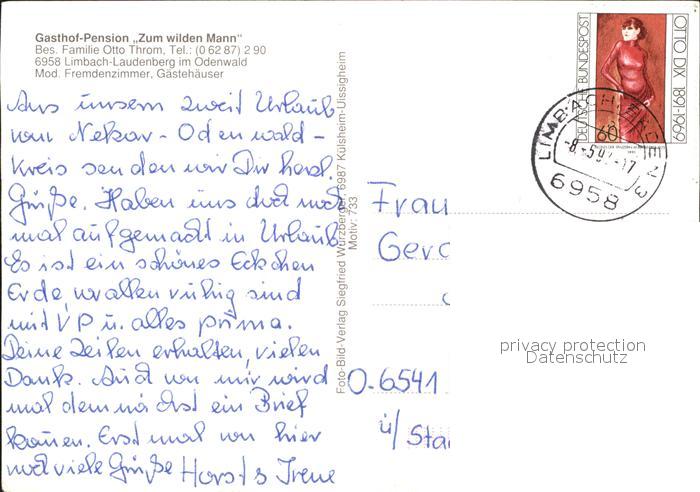 Gasthof-Pension „Zum wilden Mann"
Bes. Familie Otto Throm, Tel.: (0 62 87) 2 90
6958 Limbach-Laudenberg im Odenwald
Mod. Fremdenzimmer, Gästehäuser
Aus unserem zweit Urlaub
vom Nekar-Odenwald-
Kreis senden wir Dir herzl.
Grüße. Haben uns doch noch
mal aufgemacht in Urlaub
Es ist ein schönes Eckchen
Erde, ruhig sind
mit VP u. alles prima.
Deine Zeilen erhalten, vielen
Dank. Auch von mir wird
mal demnächst ein Brief
kommen. Erst mal von hier
noch viele Grüße Horst & Irene
Foto-Bild-Verlag Siegfried Wurzberger, 6987 Külsheim-Uissigheim
Motiv: 733
DEUTSCHE BUNDESPOST
OTTO DIX 1891-1969
60
LIMBACH, BADEN 3
-8.-5.92-17
6958
Frau
Gerd
O-6541
ü/ Stad
privacy protection
Datenschutz